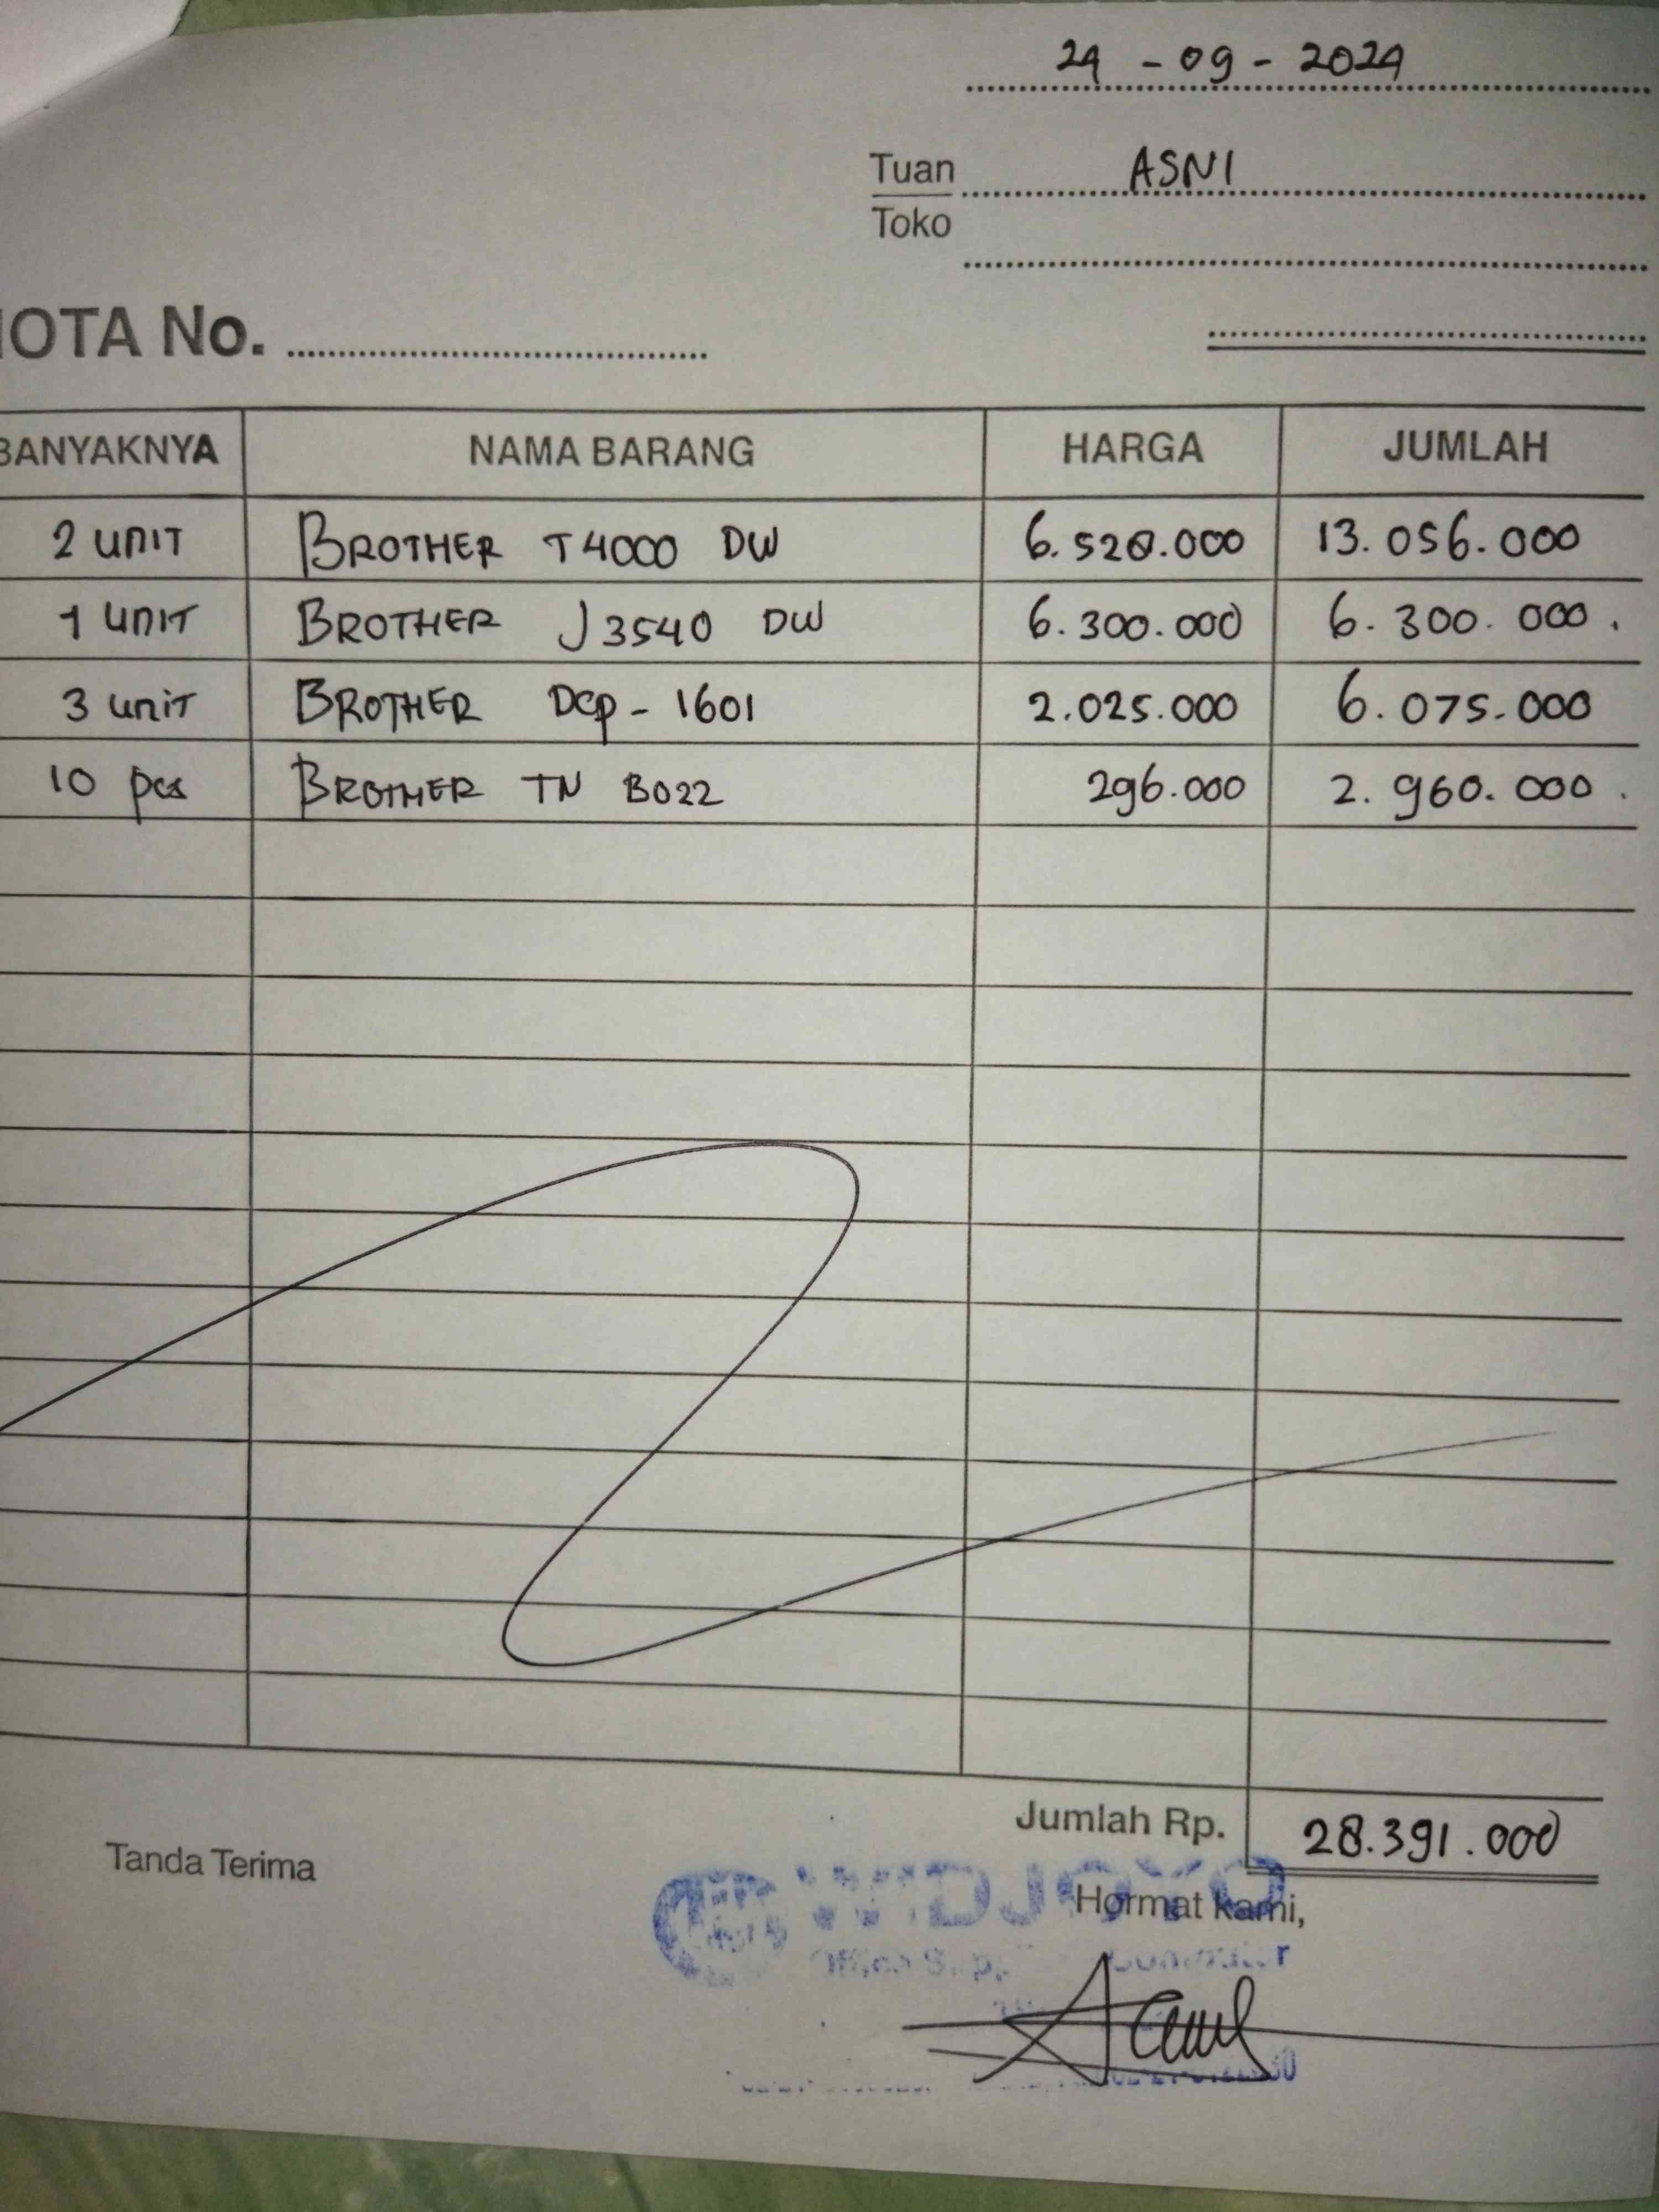 24 - 09 - 2024
Tuan ASNI
Toko
NOTA No.
BANYAKNYA NAMA BARANG HARGA JUMLAH
2 UNIT BROTHER T4000 DW 6.528.000 13.056.000
1 UNIT BROTHER J3540 DW 6.300.000 6.300.000.
3 UNIT BROTHER DCP-1601 2.025.000 6.075.000
10 pcs BROTHER TN B022 296.000 2.960.000.
Jumlah Rp. 28.391.000
Tanda Terima
Hormat kami,